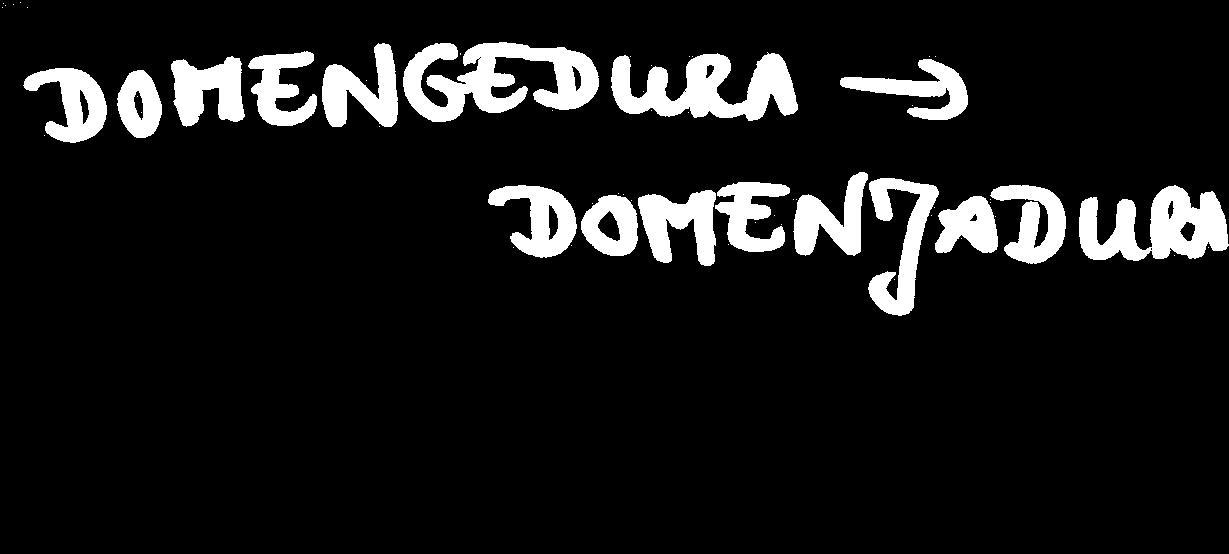 DOMENGEDURA →
DOMENJADURA